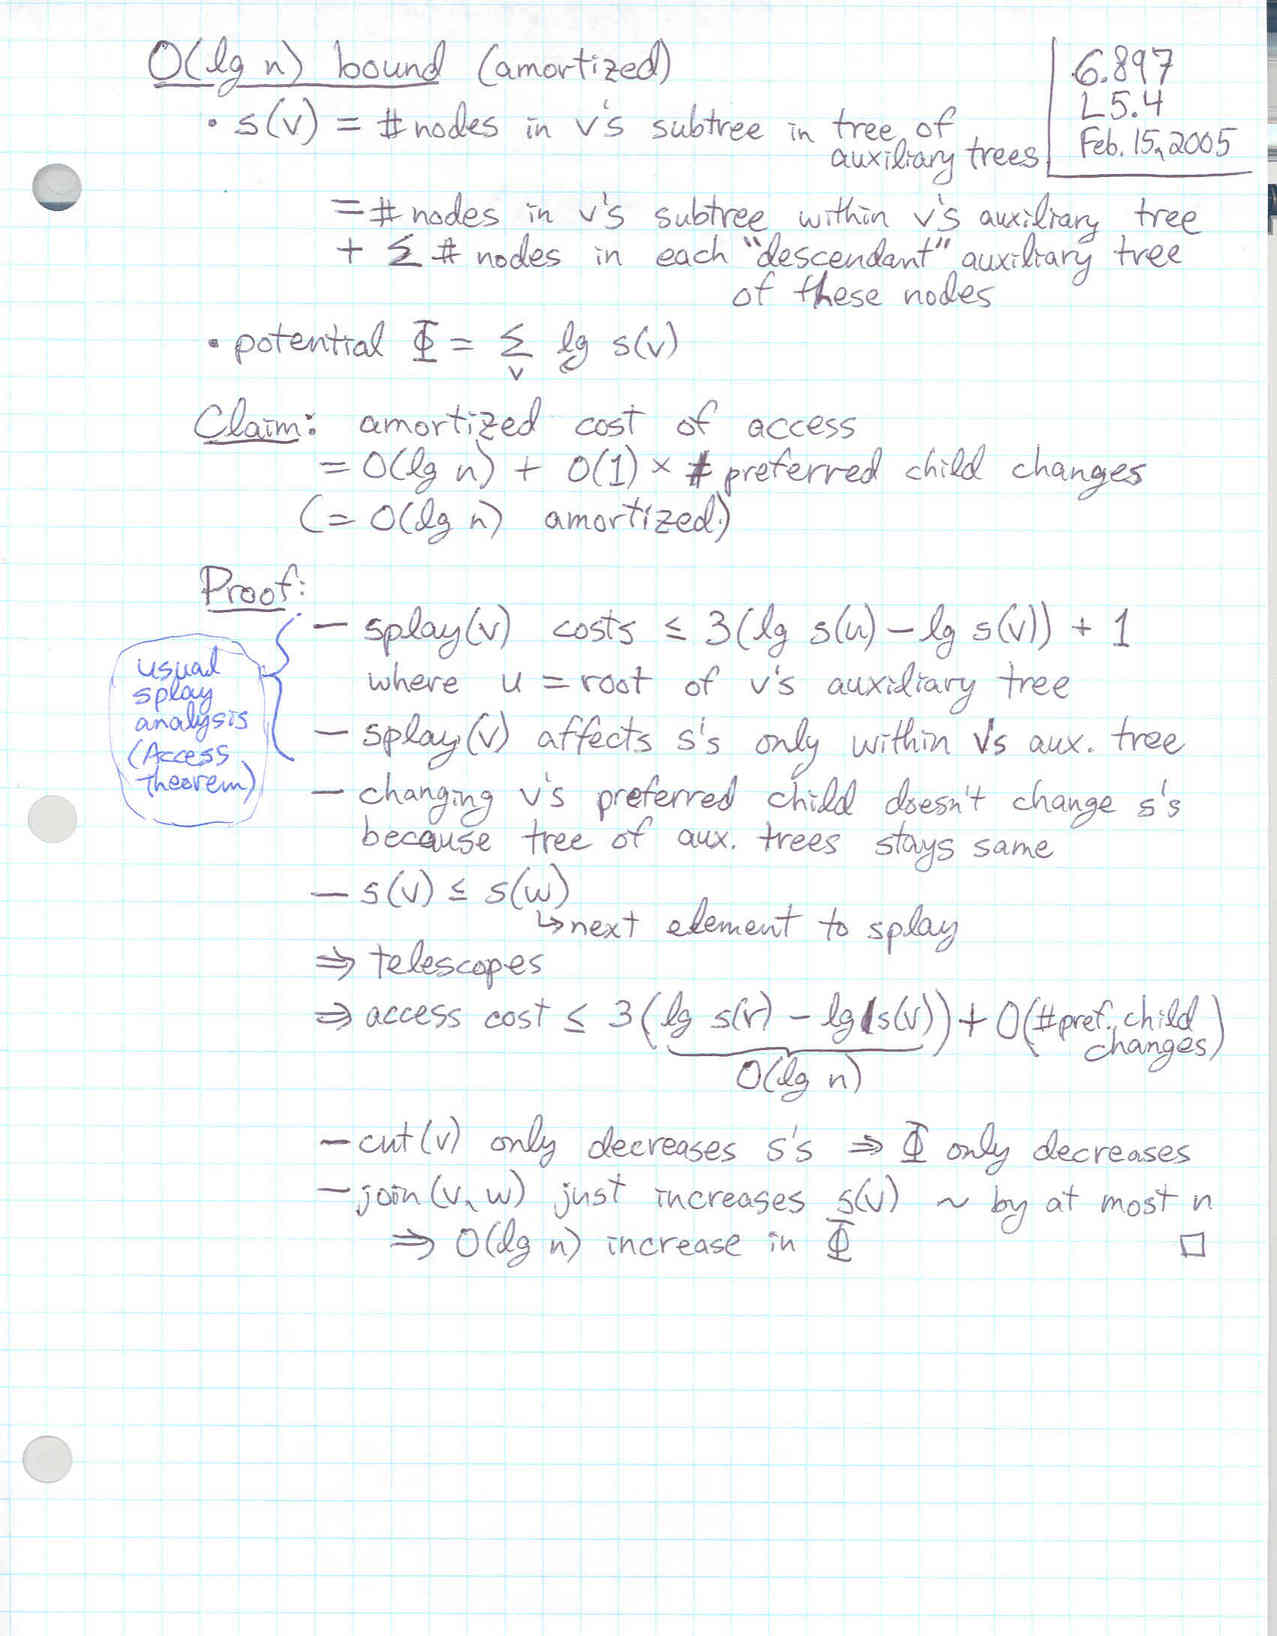 O(lg n) bound (amortized)
6.897
L5.4
Feb. 15, 2005
• s(v) = # nodes in v's subtree in tree of
auxiliary trees
= # nodes in v's subtree within v's auxiliary tree
+ Σ # nodes in each "descendant" auxiliary tree
of these nodes
• potential Φ = Σ lg s(v)
v
Claim: amortized cost of access
= O(lg n) + O(1) × # preferred child changes
(= O(lg n) amortized)
Proof:
— splay(v) costs ≤ 3(lg s(u) – lg s(v)) + 1
where u = root of v's auxiliary tree
— splay(v) affects s's only within v's aux. tree
usual
splay
analysis
(Access
theorem)
— changing v's preferred child doesn't change s's
because tree of aux. trees stays same
— s(v) ≤ s(w)
↳ next element to splay
⇒ telescopes
⇒ access cost ≤ 3(lg s(r) – lg s(v)) + O(# pref. child
changes)
O(lg n)
— cut(v) only decreases s's ⇒ Φ only decreases
— join(v, w) just increases s(v) ~ by at most n
⇒ O(lg n) increase in Φ □